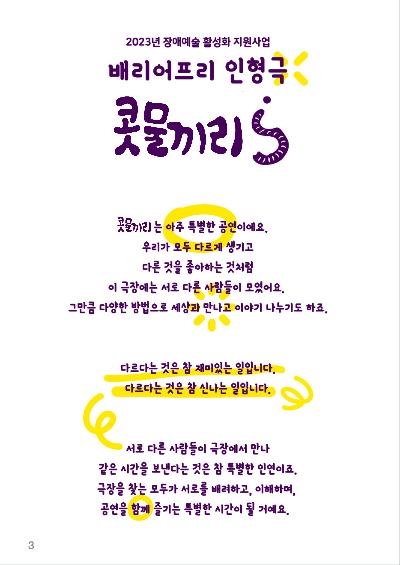 2023년 장애예술 활성화 지원사업
배리어프리 인형극
콧물끼리
콧물끼리는 아주 특별한 공연이에요.
우리가 모두 다르게 생기고
다른 것을 좋아하는 것처럼
이 극장에는 서로 다른 사람들이 모였어요.
그만큼 다양한 방법으로 세상과 만나고 이야기 나누기도 하죠.
다르다는 것은 참 재미있는 일입니다.
다르다는 것은 참 신나는 일입니다.
서로 다른 사람들이 극장에서 만나
같은 시간을 보낸다는 것은 참 특별한 인연이죠.
극장을 찾는 모두가 서로를 배려하고, 이해하며,
공연을 함께 즐기는 특별한 시간이 될 거예요.
3